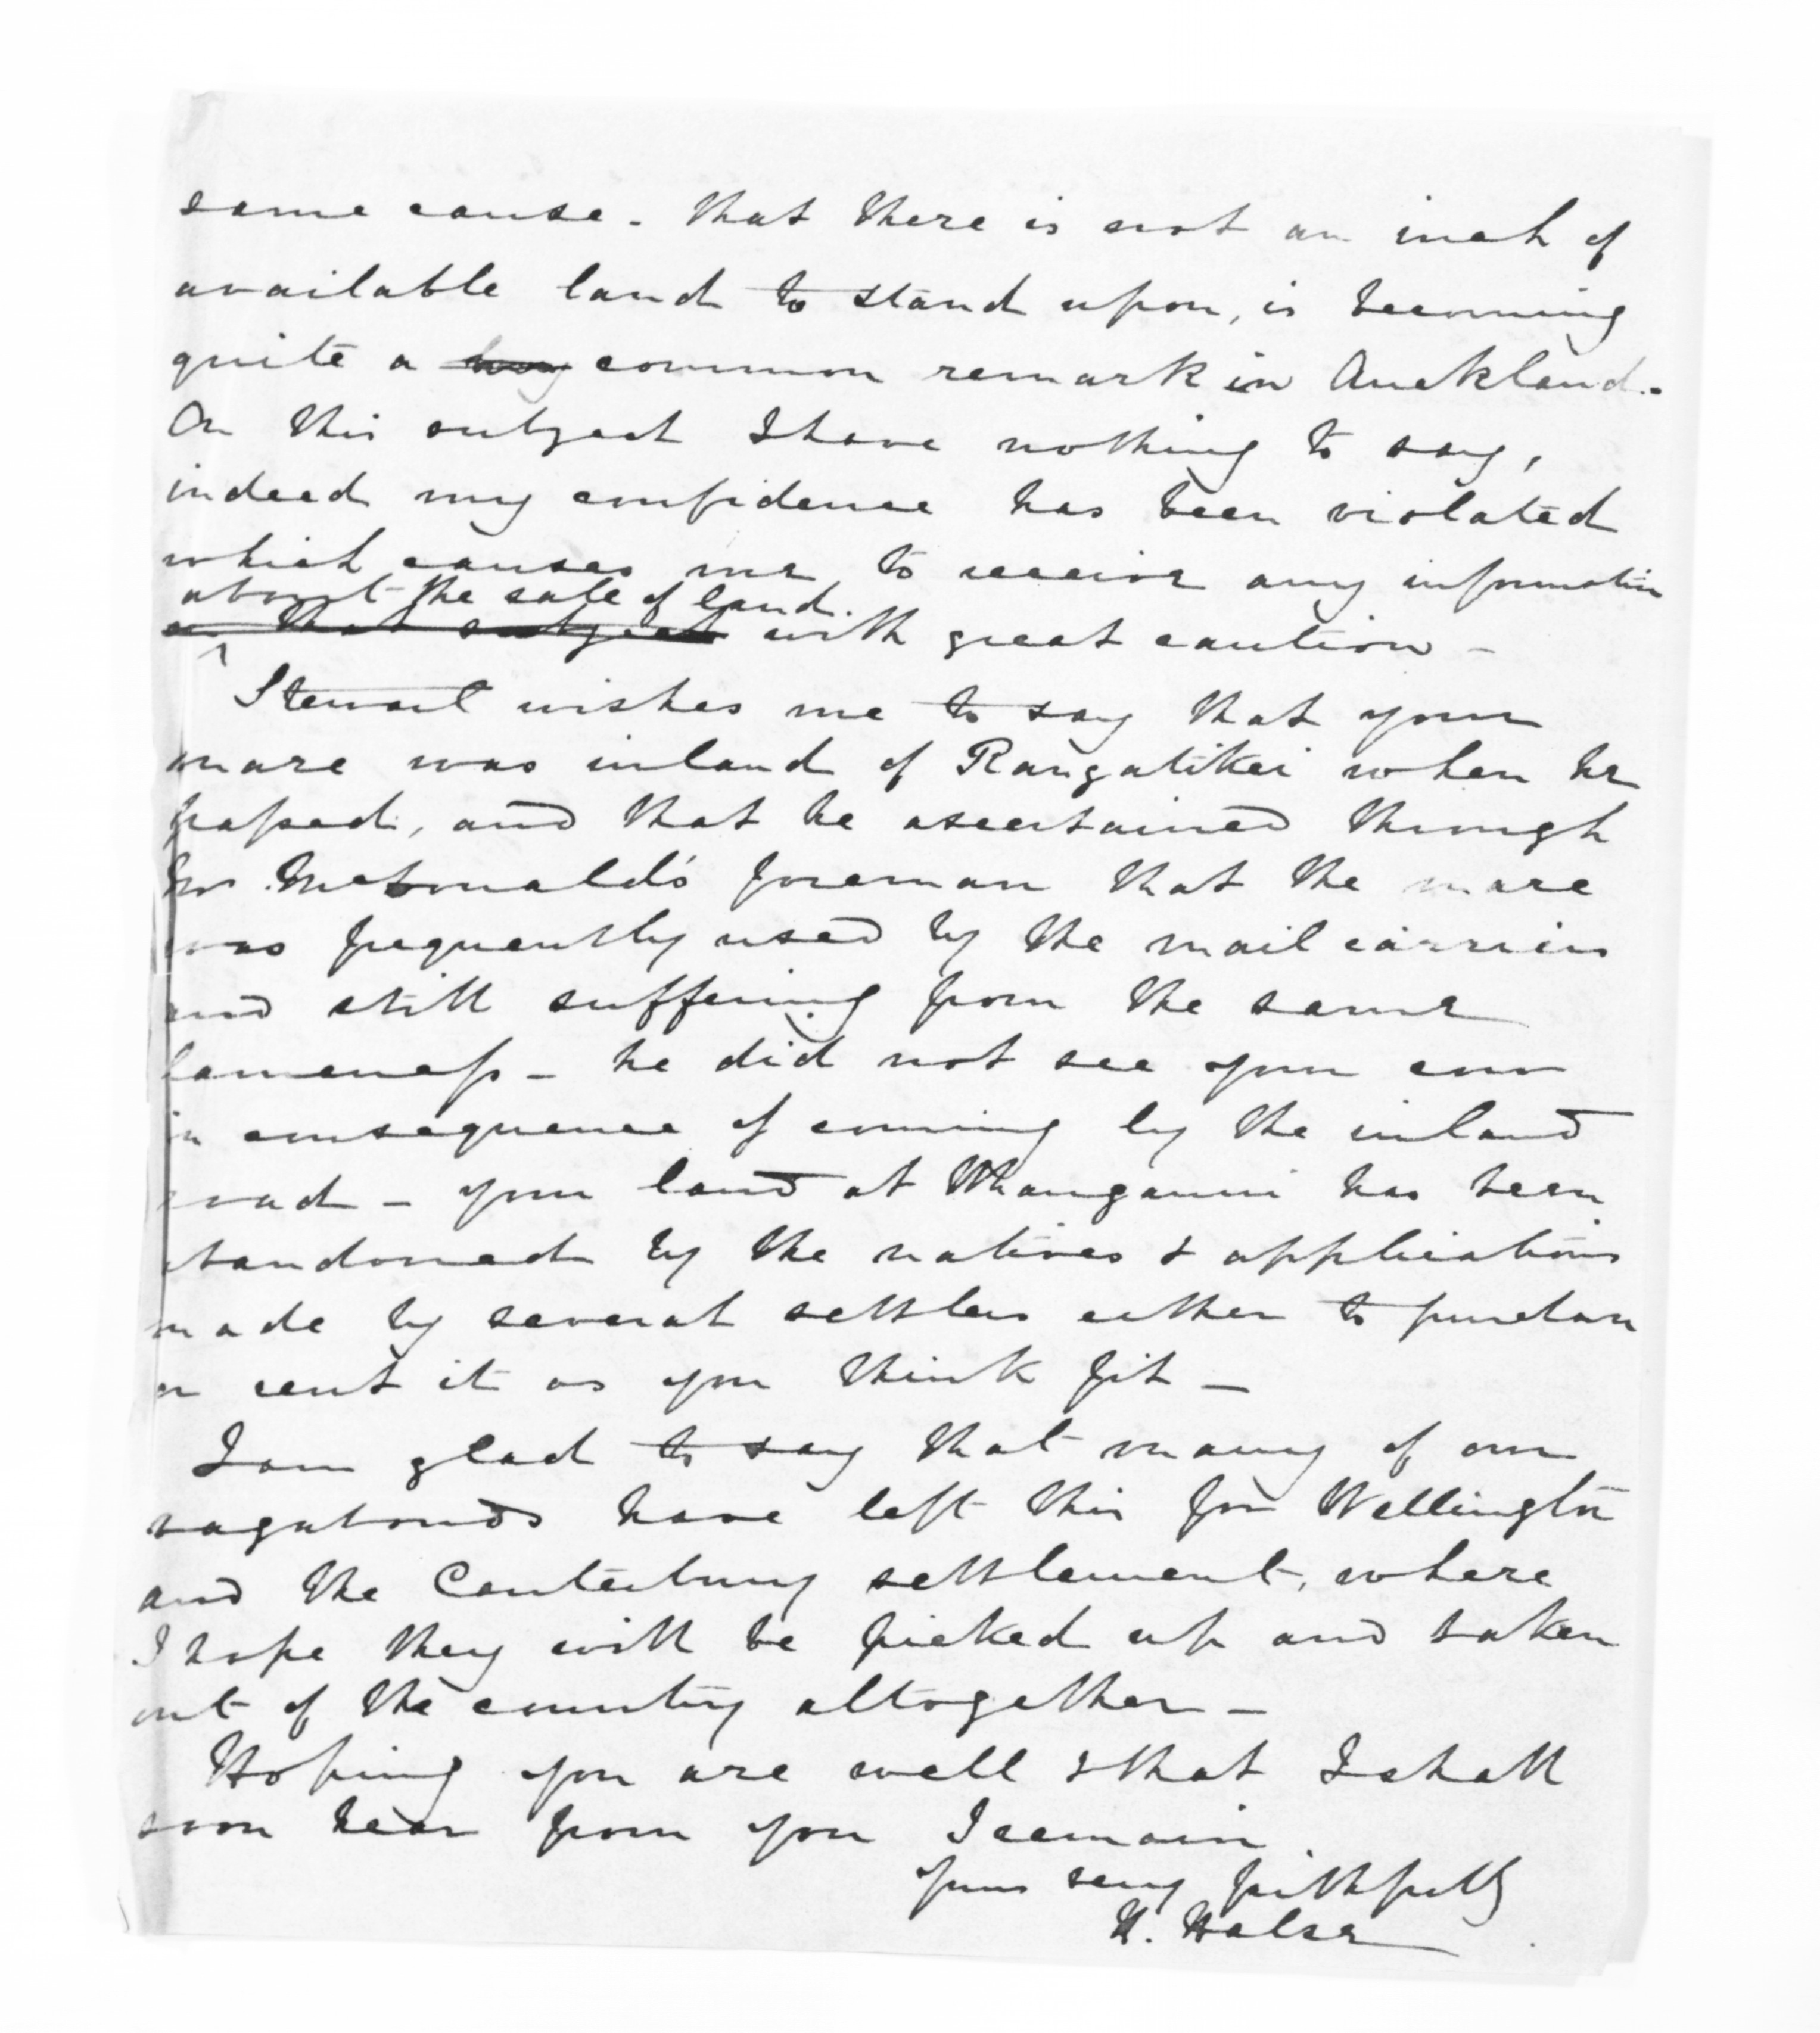 same cause. That there is not an inch of
available land to stand upon, is becoming
quite a common remark in Auckland.
On this subject I have nothing to say,
indeed my confidence has been violated
which causes me to receive any information
about the sale of land.
on that subject with great caution -
Stewart wishes me to say that your
mare was inland of Rangatikei when he
passed, and that he ascertained through
Mr. McDonald's foreman that the mare
was frequently used by the mail carriers
and still suffering from the same
lameness - he did not see your cow
in consequence of coming by the inland
road - your land at Whanganui has been
abandoned by the natives & applications
made by several settlers either to purchase
or rent it as you think fit -
I am glad to say that many of our
vagabonds have left this for Wellington
and the Canterbury settlement, where
I hope they will be picked up and taken
out of the country altogether -
Hoping you are well & that I shall
soon hear from you I remain
yours very faithfully
H. Halse